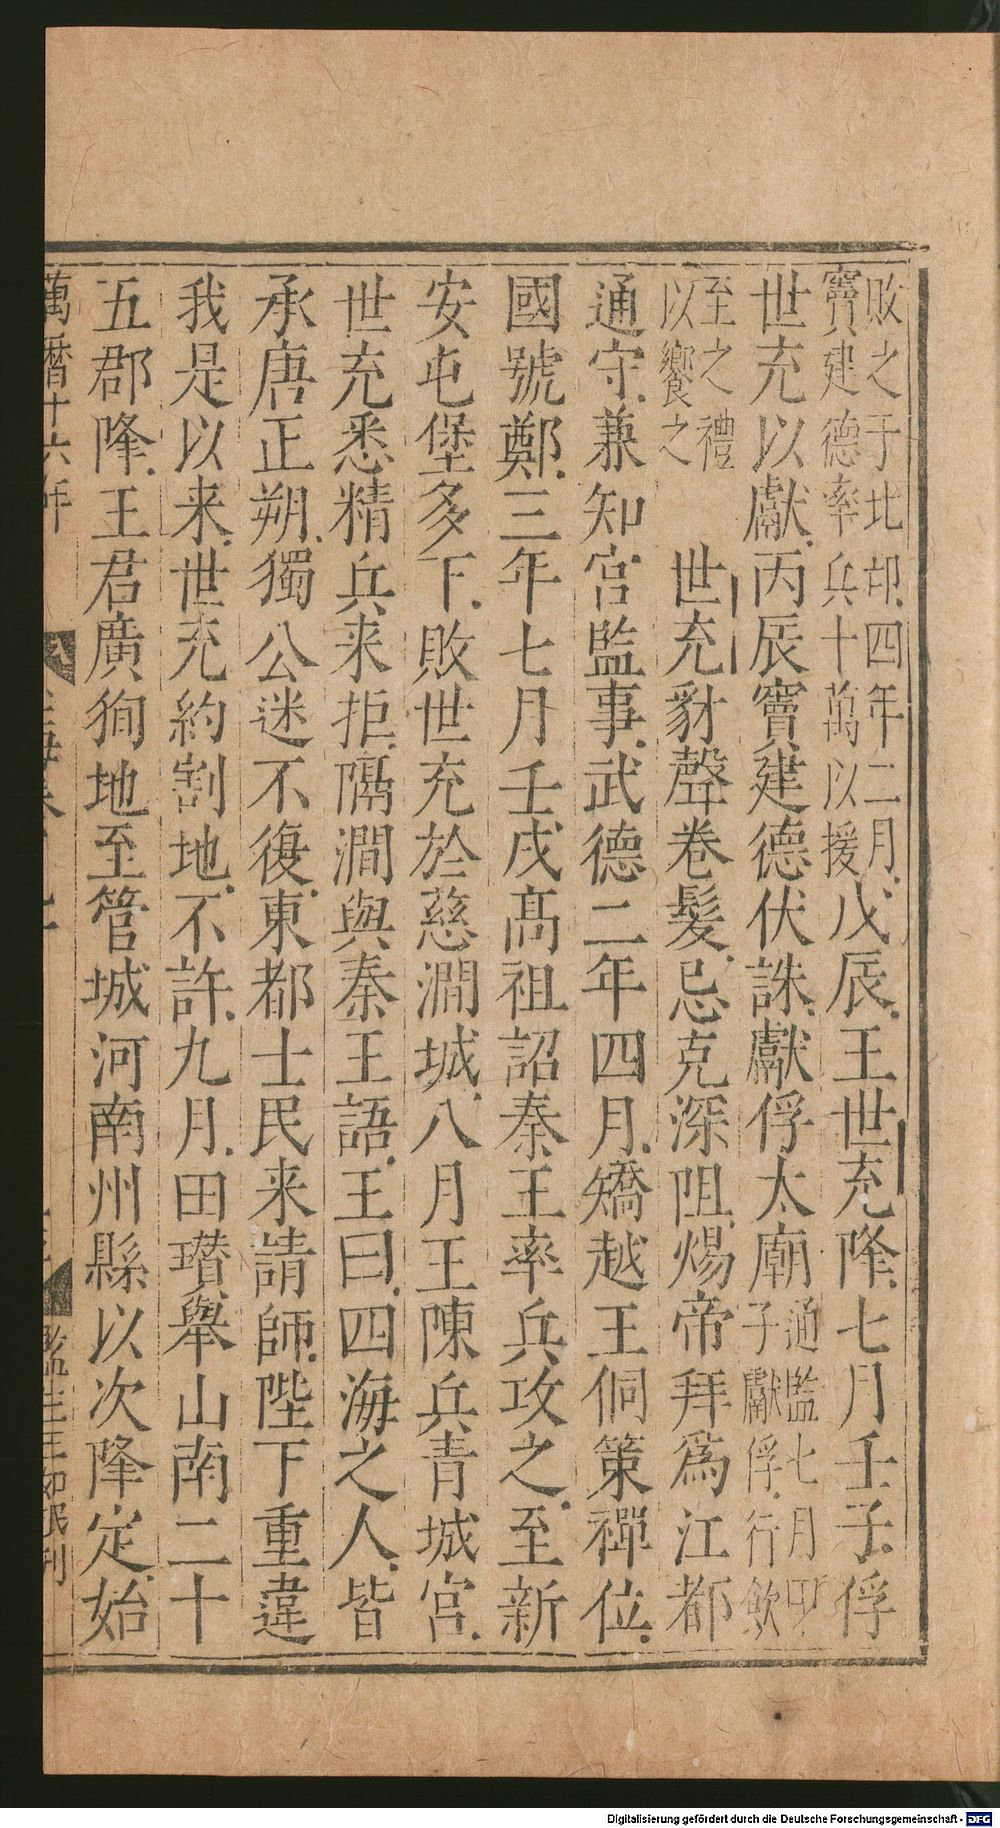 敗之于北邙四年二月
竇建德率兵十萬以援
戊辰王世充降七月壬子俘
世充以獻丙辰竇建德伏誅獻俘太廟
通鑑七月甲
子獻俘行飲
至之禮
以饗之
世充豺聲卷髮忌克深阻煬帝拜爲江都
通守兼知宮監事武德二年四月矯越王侗策禪位
國號鄭三年七月壬戌髙祖詔秦王率兵攻之至新
安屯堡多下敗世充於慈澗城八月王陳兵青城宮
世充悉精兵来拒隔澗與秦王語王曰四海之人皆
承唐正朔獨公迷不復東都士民来請師陛下重違
我是以来世充約割地不許九月田瓚舉山南二十
五郡降王君廣狥地至管城河南州縣以次降定始
萬曆十六年
監生王如珉刋
Digitalisierung gefördert durch die Deutsche Forschungsgemeinschaft - DFG